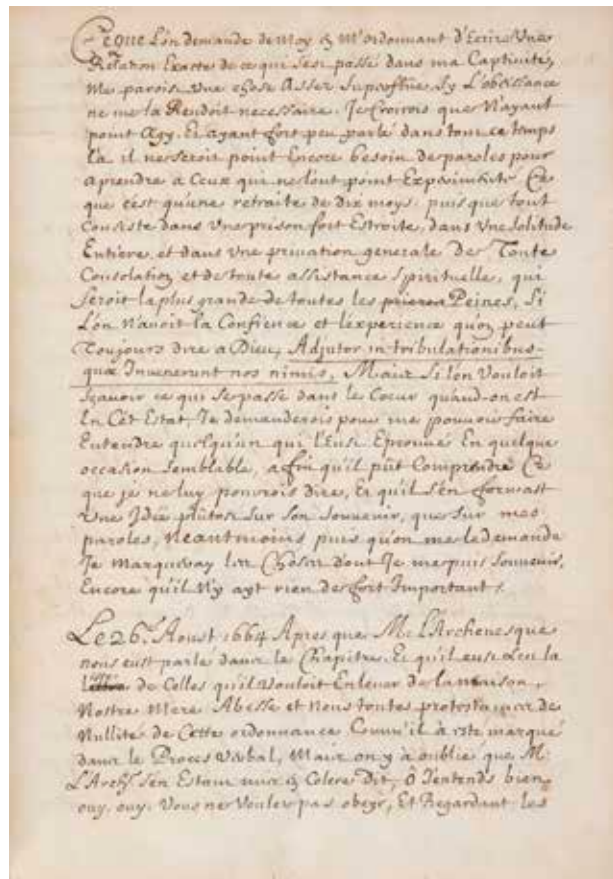 Ce que L'on demande de moy en M'ordonnant d'Ecrire Une
Relation Exacte de ce qui s'est passé dans ma Captivité,
me paroist une chose Assez superflue, sy L'obeissance
ne me la Rendoit necessaire. Je Croirois que N'ayant
point Agy, Et ayant fort peu parlé dans tout ce temps
là il ne seroit point Encore besoin de paroles pour
aprendre a Ceux qui ne l'ont point Experimenté Ce
que c'est qu'une retraite de dix moys, puis que tout
Consiste dans Une prison fort Estroite, dans Une solitude
Entiere, et dans Une privation generale de Toute
Consolation et de toute assistance spirituelle, qui
seroit la plus grande de toutes les Peines, Si
L'on N'avoit la Confience et l'experience qu'on peut
Toujours dire a Dieu, Adjutor in tribulationibus
quæ Invenerunt nos nimis, Mais Si l'on Vouloit
sçavoir ce qui se passe dans le Coeur quand on est
En Cét Estat, Je demanderois pour me pouvoir faire
Entendre quelqu'un qui l'Eust Eprouvé En quelque
occasion semblable, afin qu'il pût Comprendre Ce
que je ne luy pourrois dire, Et qu'il s'en formast
Une Idée plûtost sur son souvenir, que sur mes
paroles, neantmoins puis qu'on me le demande
Je Marqueray les Choses dont Je me puis souvenir,
Encore qu'il N'y ayt rien de fort Important /.
Le 26.e Aoust 1664 Apres que Mr. L'Archevesque
nous eust parlé dans le Chapitre, Et qu'il eust Leu la
de Celles qu'il Vouloit Enlever de la maison,
Nostre Mere Abesse et Nous toutes protestames de
Nullité de Cette ordonnance Comm'il à esté marqué
dans le Proces Verbal, Mais on y à oublié que Mr.
L'Arch. s'en Estant mis en Colere Dit, ô J'entends bien
ouy, ouy. Vous ne Voulez pas obeyr, Et Regardant les